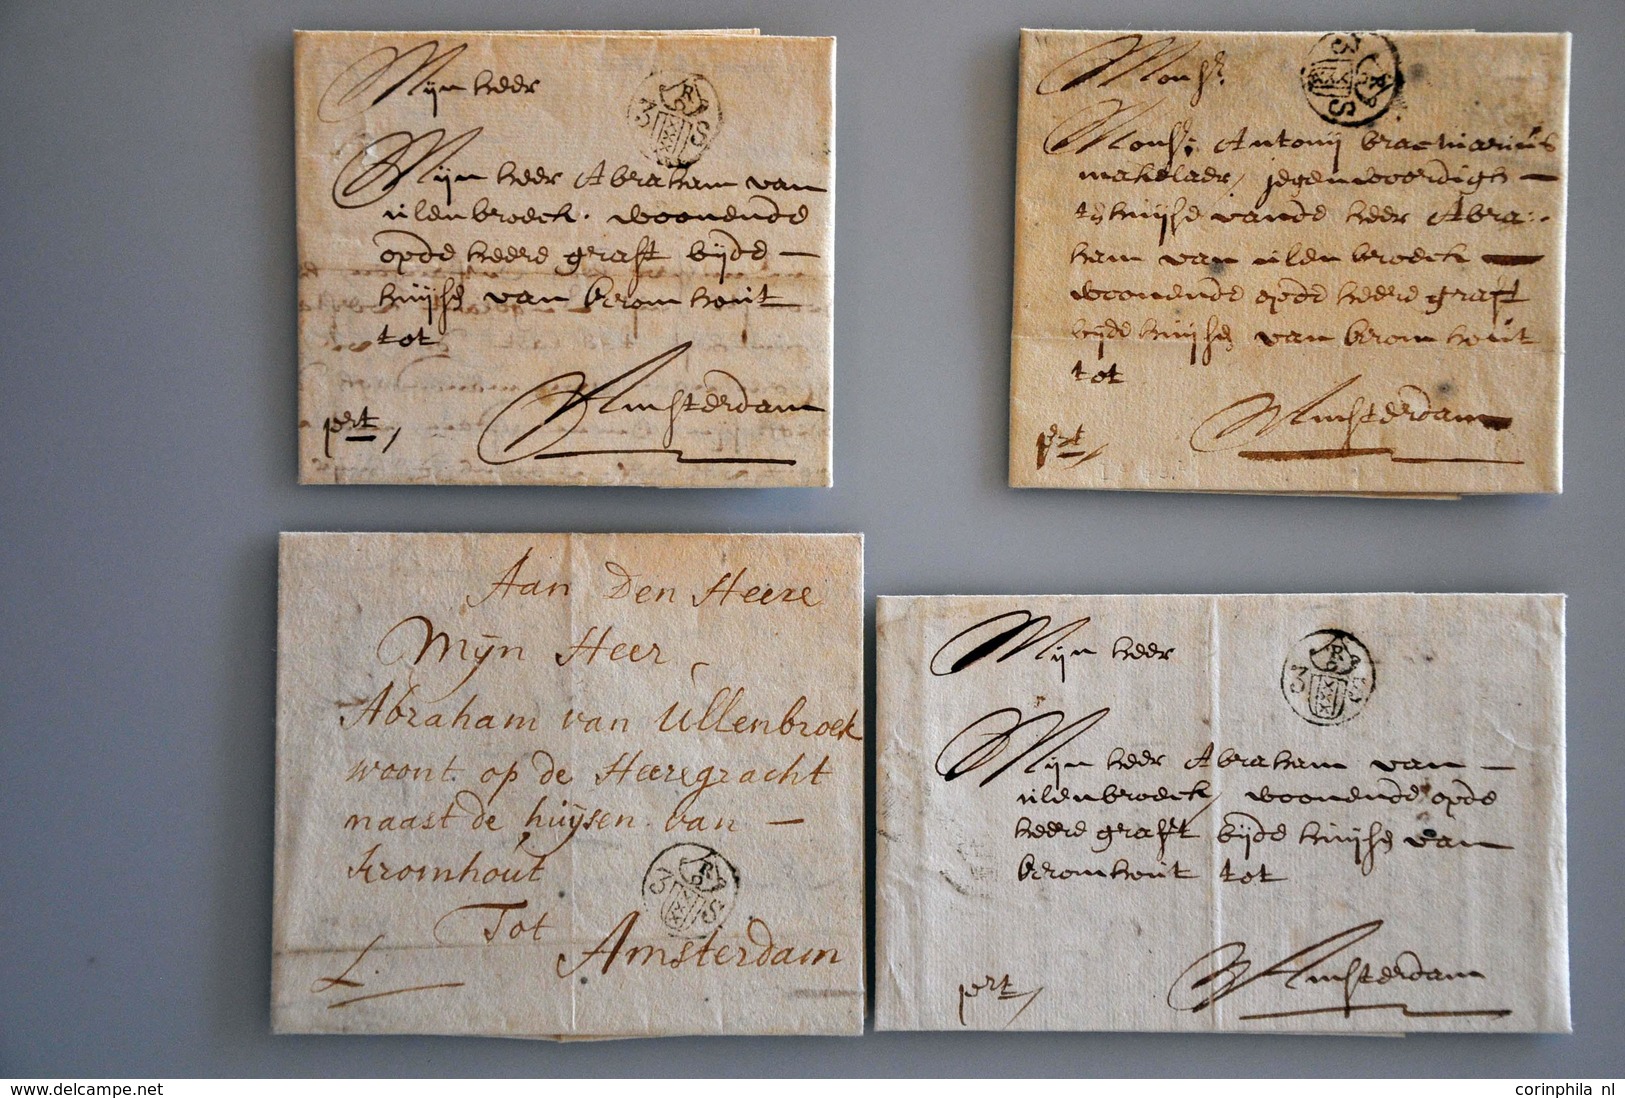 Mijn heer
3 S
Mijn heer Abraham van
uilenbroeck. woonende
opde heere graft bijde
huijse van kromhout
tot
Amsterdam
port
Mons.r
3 S
Mons.r Antonij
makelaer, jegenwoordigh
ten huijse vande heer Abra:
ham van uilenbroeck
woonende opde heere graft
bijde huijse van kromhout
tot
Amsterdam
port
Aan Den Heere
Mijn Heer
Abraham van Ullenbroek
woont op de Heeregracht
naast de huijsen van
kromhout
3 S
Tot Amsterdam
Mijn heer
3 S
Mijn heer Abraham van
uilenbroeck, woonende opde
heere graft bijde huijse van
kromhout tot
Amsterdam
port
www.delcampe.net
corinphila nl